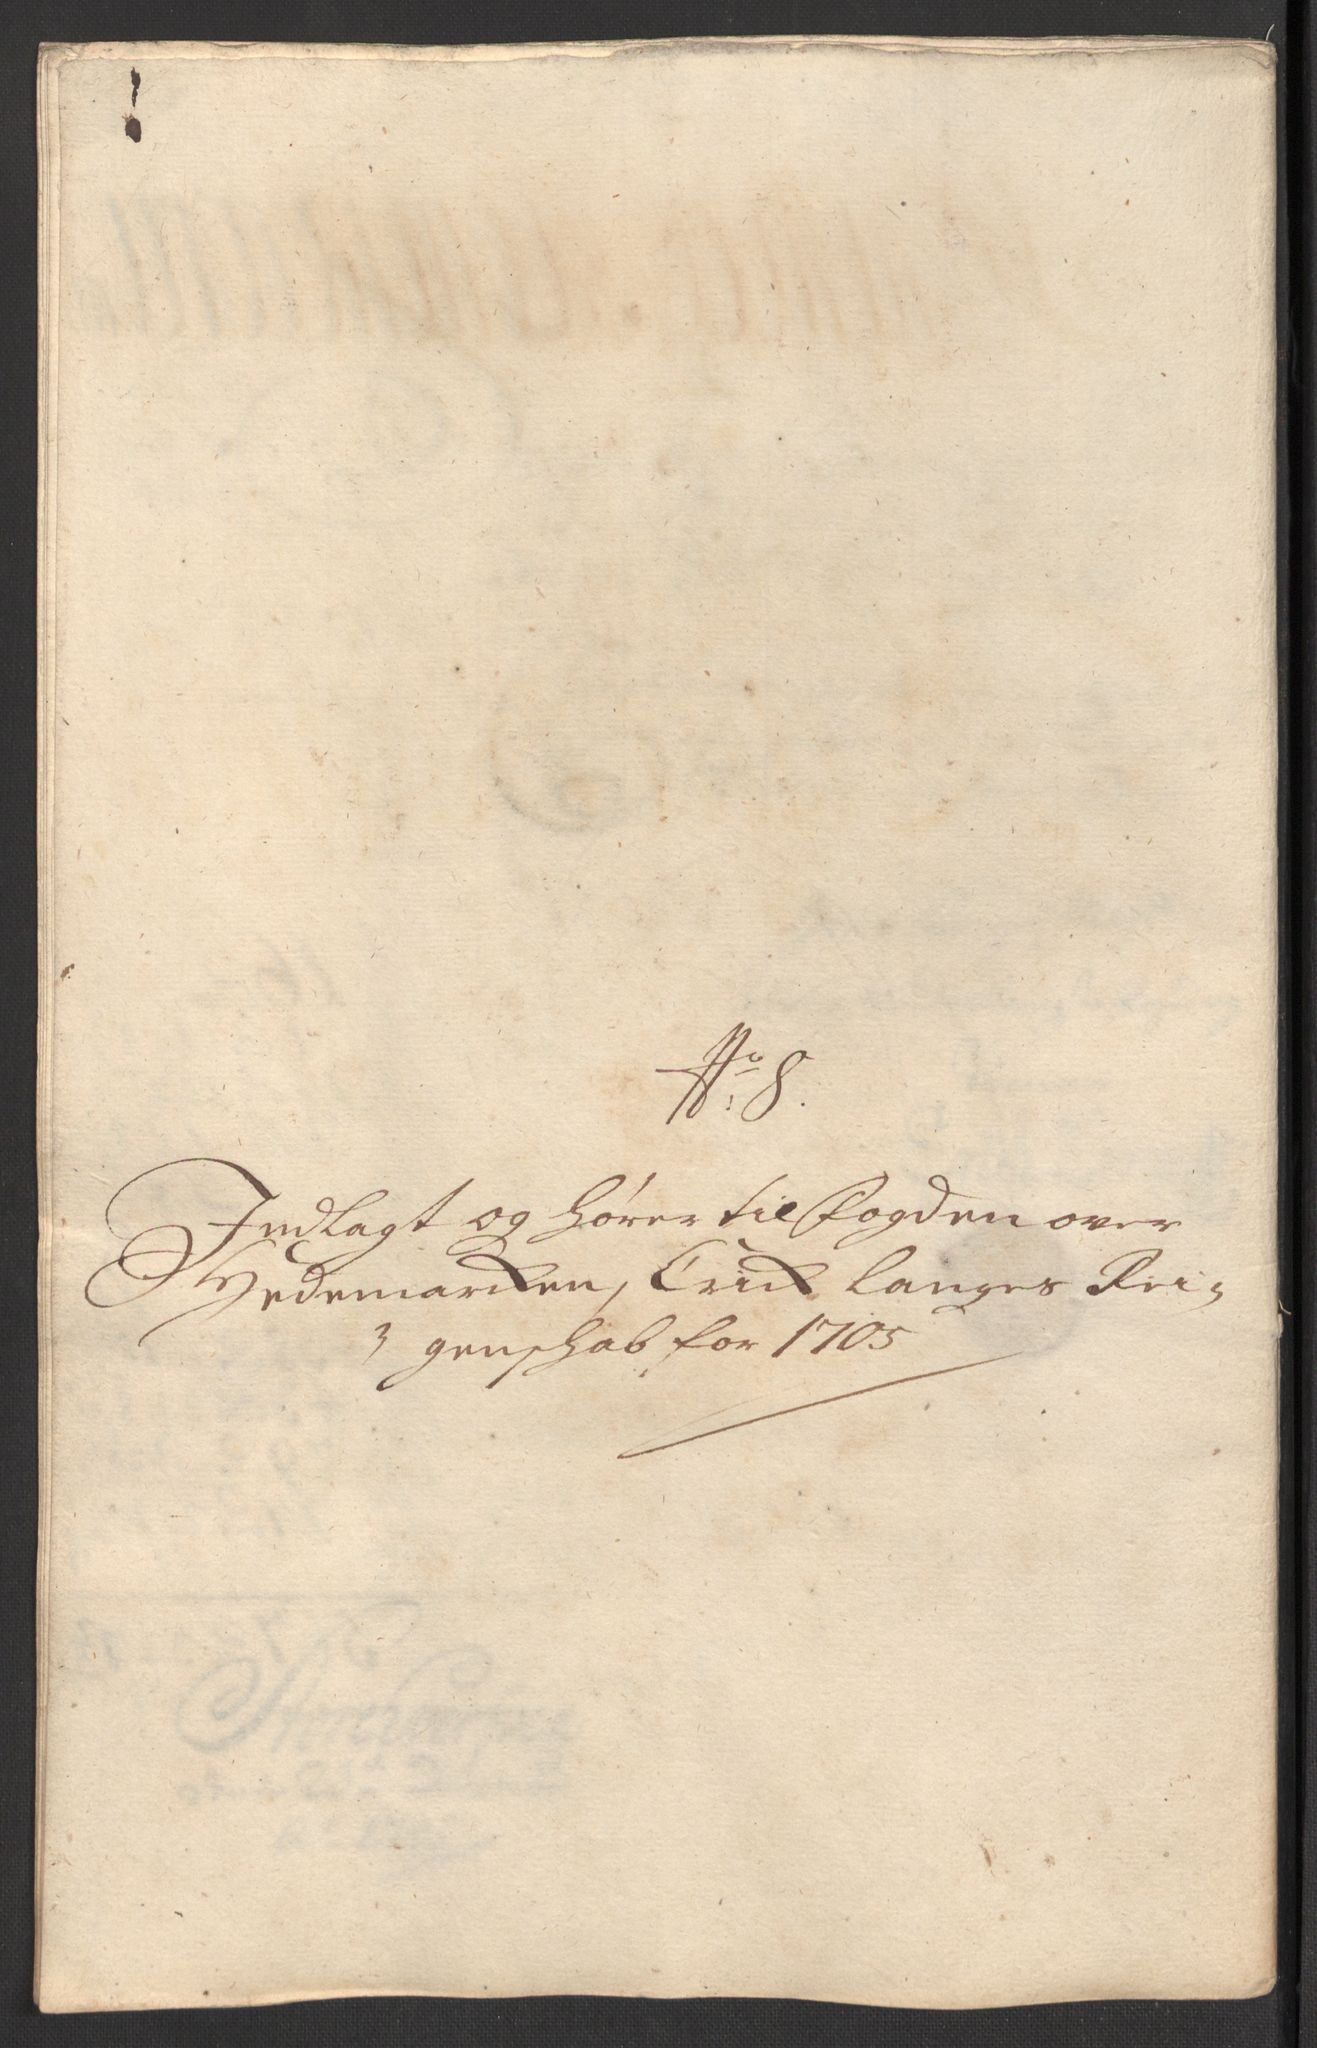 No: 8.
Indlagt og hører til Fogden over
Hedemarcken, Erick Langes Rei-
genschab for 1705